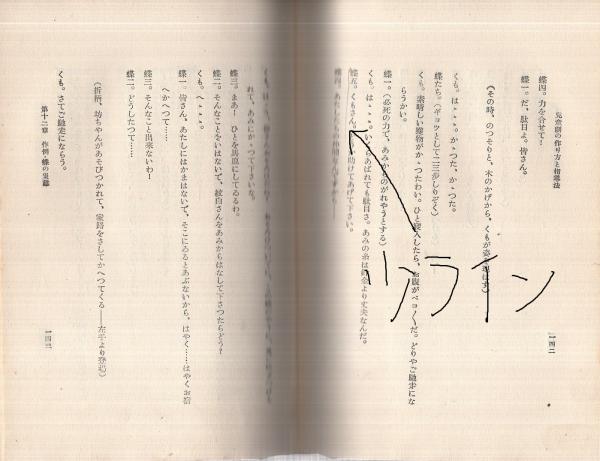 児童劇の作り方と指導法
一四二
蝶四。力を合せて！
蝶一。だ、駄目よ。皆さん。
《その時、のつそりと、木のかげから、くもが姿を現はす》
くも。は、、、。か、つた、か、つた。
蝶たち。（ギョッとして二三歩しりぞく）
くも。素晴しい獲物がか、つたわい。ひと寝入したら、お腹がペコ〳〵だ。どりやご馳走にな
らうかい。
蝶一。（必死の力で、あみからのがれやうとする）
くも。は、、、。いくらあばれても駄目さ。あみの糸は鉄金より丈夫なんだ。
蝶五。くもさん。助けてあげて下さい。
蝶四。あたしたち
ツライン
れて、あみにかゝつて下さいな。
蝶三。まあ！　ひとを馬鹿にしてゐるわ。
蝶二。そんなことをいはないで、紋白さんをあみからはなして下さつたらどう？
くも。へ、、、、。
蝶一。皆さん。あたしにはかまはないで、そこにゐるとあぶないから、はやく……はやくお宿
へかへつて……
蝶三。そんなこと出来ないわ！
蝶二。どうしたつて……
（折柄、坊ちやんがあそびつかれて、家路をさしてかへつてくる――左手より登場）
くも。さてご馳走にならう。
第十二章　作例・蝶の災難
一四三